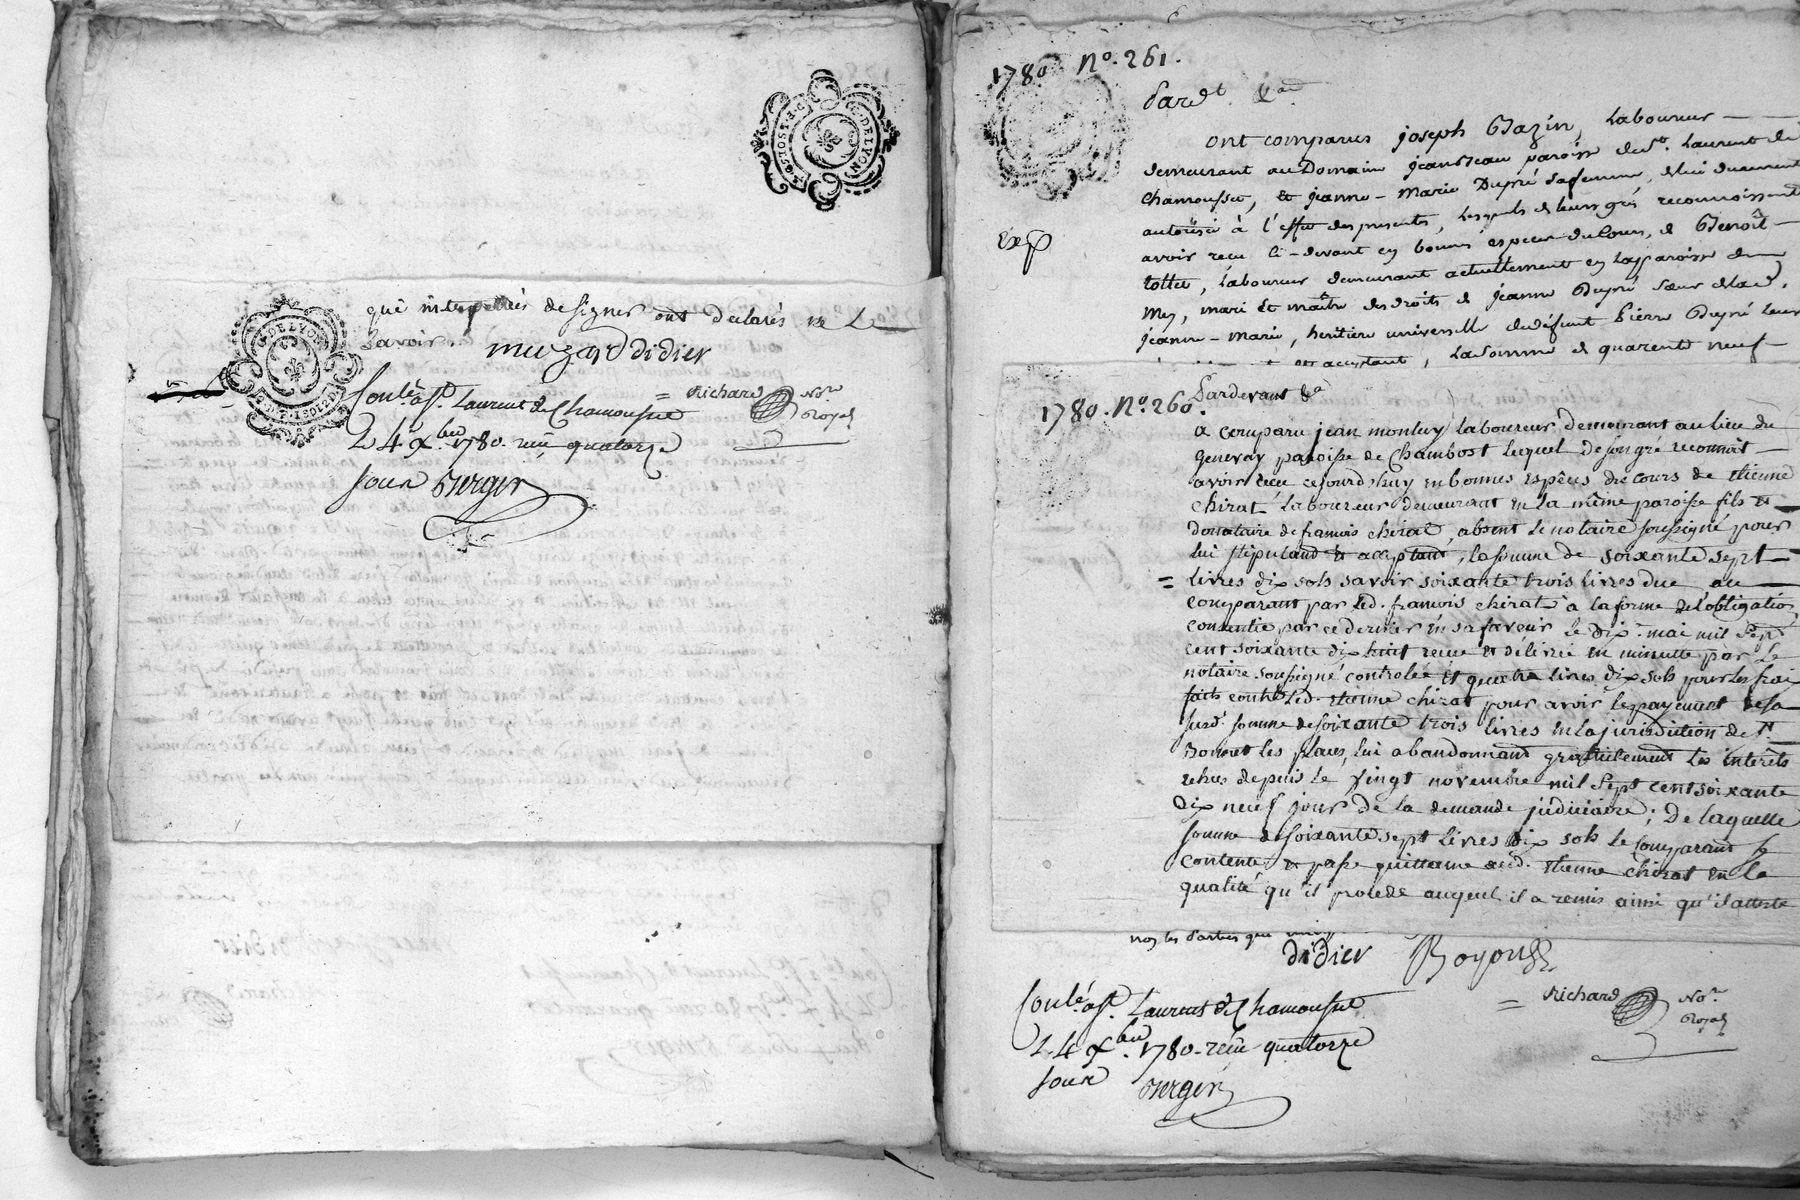 G. DE LYON
que interpellés de signer ont déclarés ne le
savoir.
muzard didier
Conlé. a St. Laurent de Chamousset
= Richard No.re Royal
24 Xbre 1780. reçu quatorze
sous Berger
1780 No. 261.
Pardt. &a
ont comparus joseph Bazin, Laboureur
demeurant au Domaine jeanteau paroisse de St. Laurent de
chamousset, et jeanne-Marie Dupré sa femme, de lui duement
autorisée à l'effet des presentes, lesquels de leurs grés reconnoissent
Exp
avoir recu ci-devant en bonnes especes du cours, de Benoît
tollet, Laboureur demeurant actuellement en la paroisse de
Mey, mari et maître des droits de jeanne Dupré sœur de lad.
jeanne-Marie, heritiere universelle de défunt Pierre Dupré leur
et acceptant, la somme de quarente neuf
Pardevant &a
1780. No. 260.
a comparu jean monluy laboureur demeurant au lieu du
genevay paroisse de Chambost lequel de son gré reconnoit
avoir recu ce jourd'huy en bonnes espèces du cours de etienne
chirat laboureur demeurant en la même paroisse fils et
donataire de francois chirat, absent le notaire soussigné pour
lui stipuland et acceptant, la somme de soixante sept
= livres dix sols savoir soixante trois livres due au
comparant par led. francois chirat à la forme de l'obligation
consentie par ce dernier en sa faveur le dix mai mil sept
cent soixante dix huit recue et délivrée en minutte par le
notaire soussigné controlée et quatre livres dix sols pour les frai
faits contre led. etienne chirat pour avoir le payement de la
susd. somme de soixante trois livres en la jurisdiction de St
Bonnet les places, lui abandonnant gratuitement les interêts
echus depuis le vingt novembre mil sept cent soixante
dix neuf jour de la demande judiciaire; De laquelle
somme de soixante sept livres dix sols le comparant se
contente et passe quittance aud. etienne chirat en la
qualité qu'il procede auquel il a remis ainsi qu'il atteste
non les Parties que
didier Boyon
Conlé. a St. Laurent de Chamousset
= Richard No.re Royal
24 Xbre. 1780. reçu quatorze
sous Berger